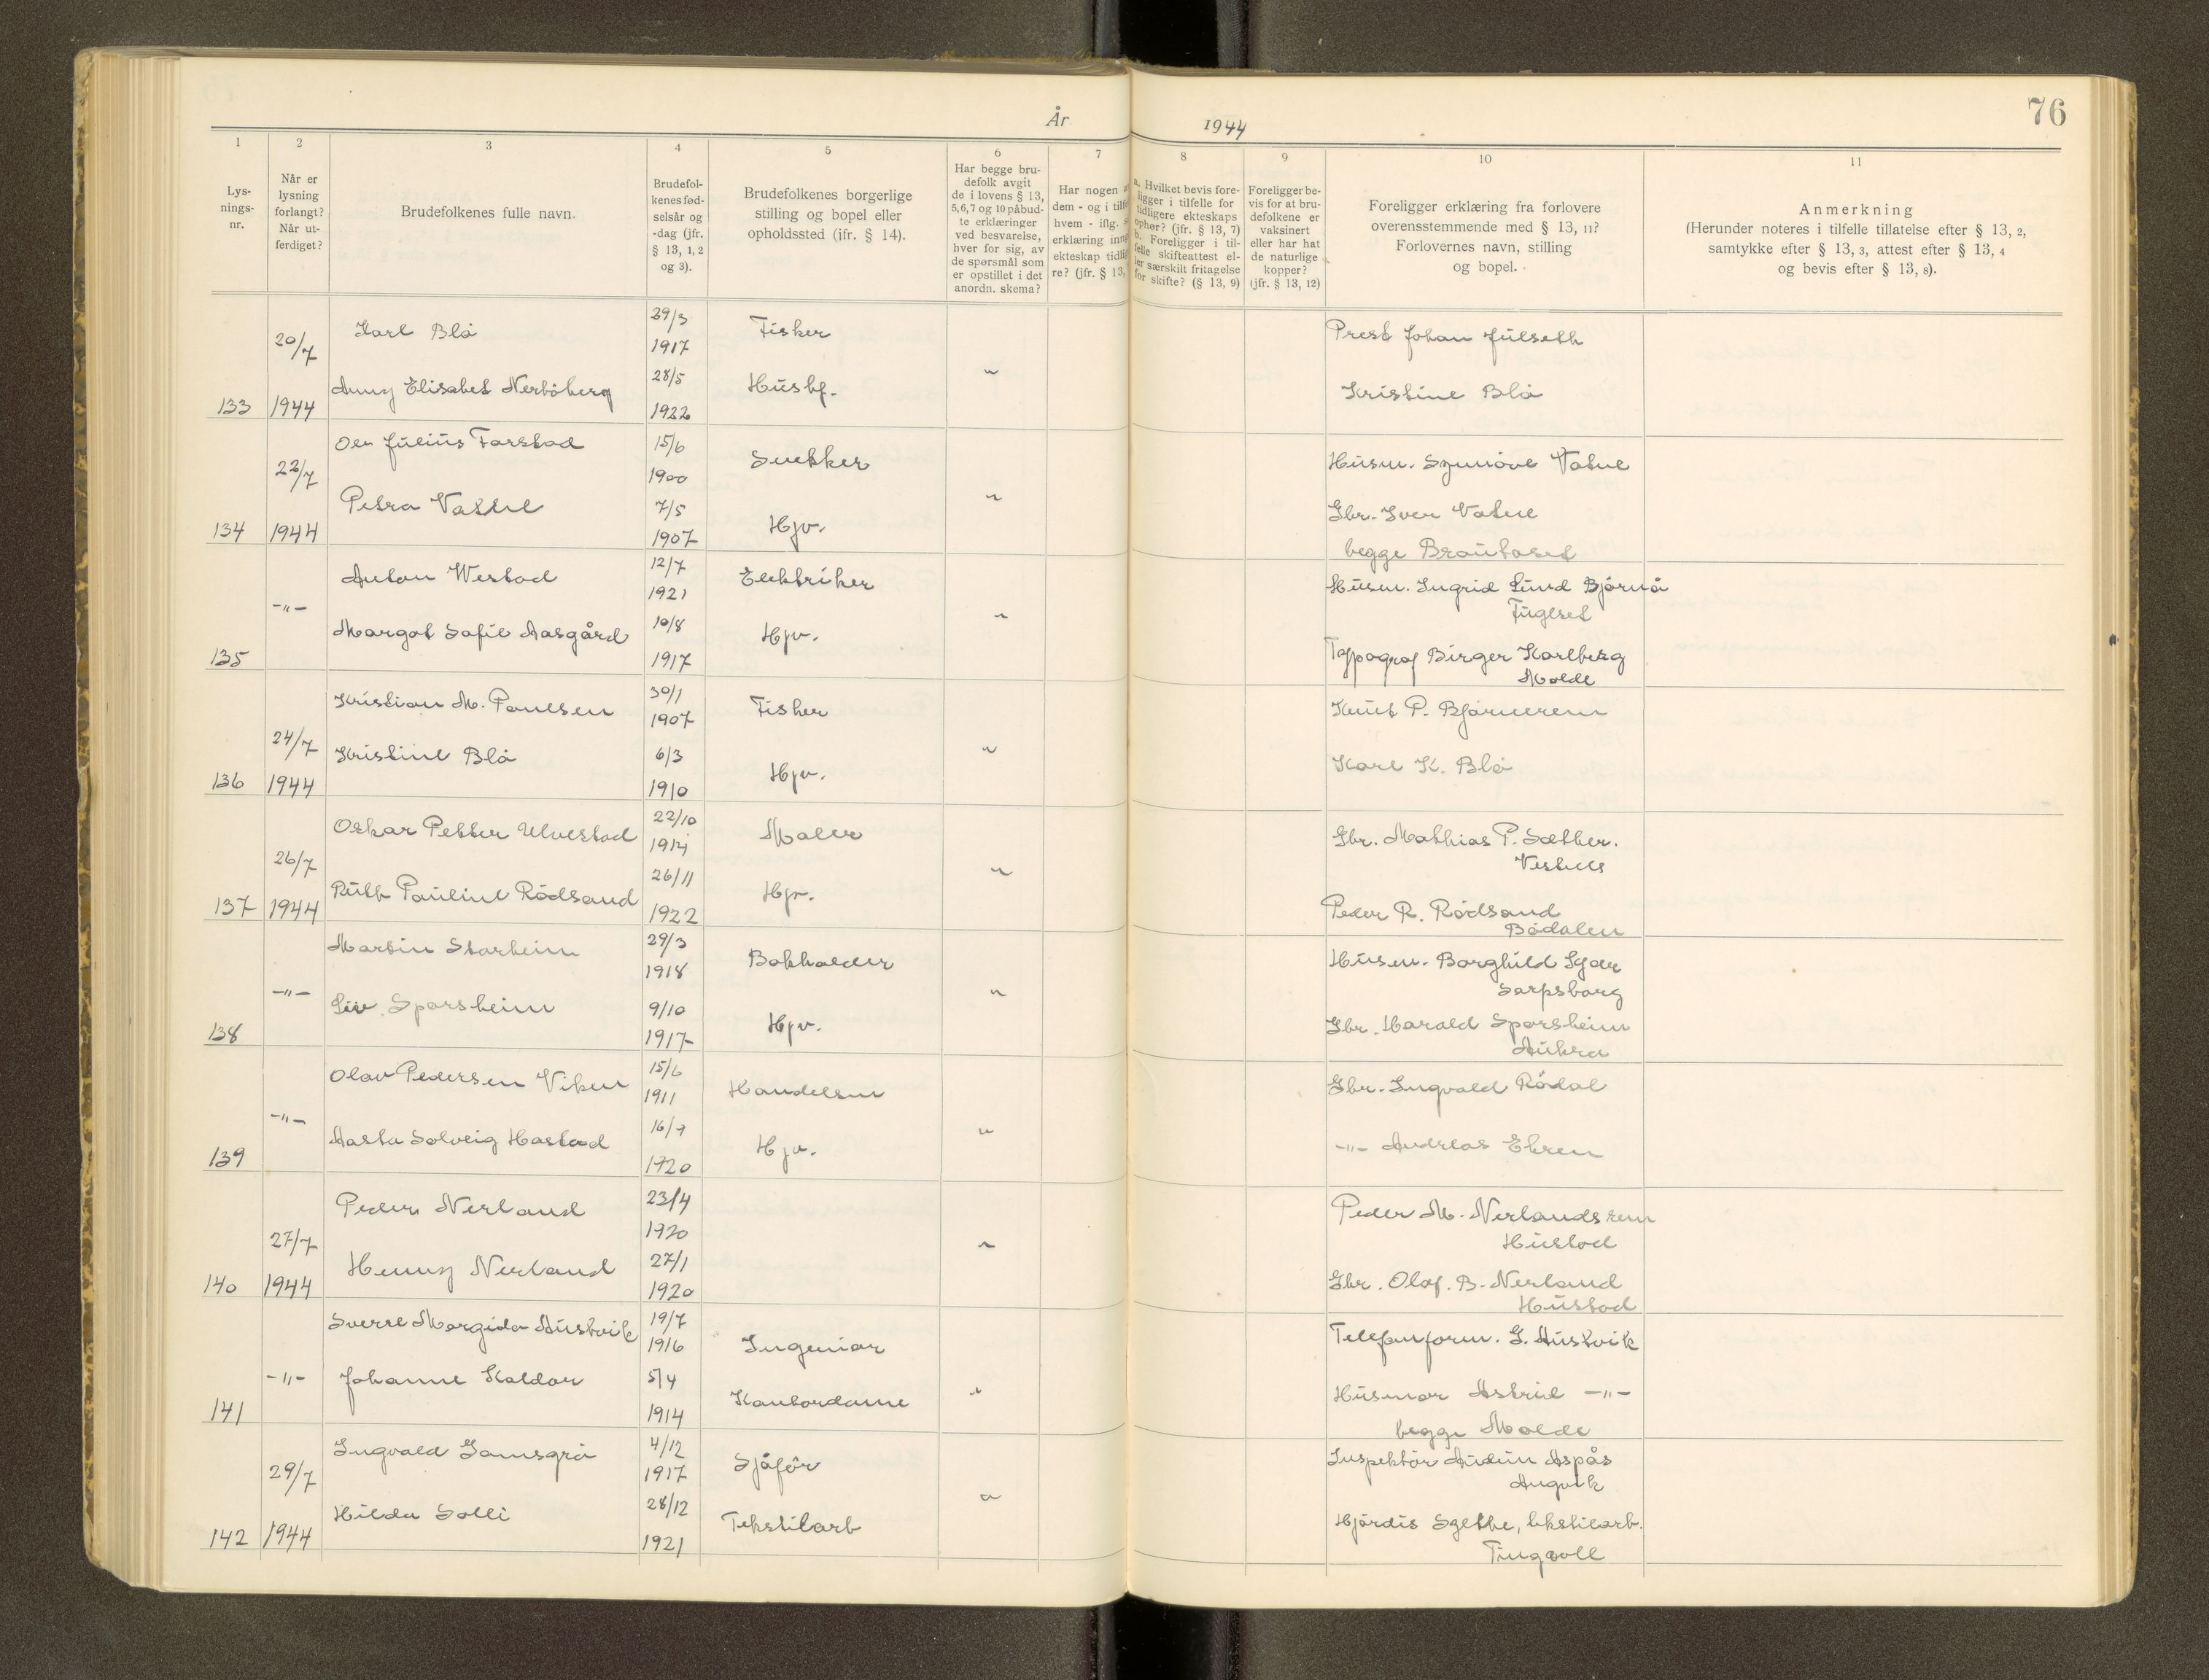 76
År 1944
1
2
3
4
5
6
7
8
9
10
11
Lys-
nings-
nr.
Når er
lysning
forlangt?
Når ut-
ferdiget?
Brudefolkenes fulle navn.
Brudefol-
kenes fød-
selsår og
-dag (jfr.
§ 13, 1, 2
og 3).
Brudefolkenes borgerlige
stilling og bopel eller
opholdssted (jfr. § 14).
Har begge bru-
defolk avgit
de i lovens § 13,
5, 6, 7 og 10 påbud-
te erklæringer
ved besvarelse,
hver for sig, av
de spørsmål som
er opstillet i det
anordn. skema?
Har nogen
dem - og i tilf
hvem - iflg.
erklæring inng
ekteskap tidlig
re? (jfr. § 13,
a. Hvilket bevis fore-
ligger i tilfelle for
tidligere ekteskaps
ophør? (jfr. § 13, 7)
b. Foreligger i til-
felle skifteattest el-
ler særskilt fritagelse
for skifte? (§ 13, 9)
Foreligger be-
vis for at bru-
defolkene er
vaksinert
eller har hat
de naturlige
kopper?
(jfr. § 13, 12)
Foreligger erklæring fra forlovere
overensstemmende med § 13, 11?
Forlovernes navn, stilling
og bopel.
Anmerkning
(Herunder noteres i tilfelle tillatelse efter § 13, 2,
samtykke efter § 13, 3, attest efter § 13, 4
og bevis efter § 13, 8).
133 20/7 1944
Karl Blø 29/3 1917 Fisker
Prest Johan Julseth
Anny Elisabet Nerbøberg 28/5 1922 Husbf.
Kristine Blø
134 22/7 1944
Ole Julius Farstad 15/6 1900 Snekker
Husm. Synnøve Vatne
Petra Vatne 7/5 1907 Hjv.
Gbr. Iver Vatne
begge Brautaset
135 -"-
Anton Westad 12/7 1921 Elektriker
Husm. Ingrid Lund Bjørnå
Fuglset
Margot Sofie Aasgård 10/8 1917 Hjv.
Typograf Birger Karlberg
Molde
136 24/7 1944
Kristian M. Paulsen 30/1 1907 Fisker
Knut P. Bjørnerem
Kristine Blø 6/3 1910 Hjv.
Karl K. Blø
137 26/7 1944
Oskar Petter Ulvestad 22/10 1914 Maler
Gbr. Mathias P. Sæther.
Vestnes
Ruth Pauline Rødsand 26/11 1922 Hjv.
Peder R. Rødsand
Bødalen
138 -"-
Martin Starheim 29/3 1918 Bokholder
Husm. Borghild Lyder
Sarpsborg
Liv Sporsheim 9/10 1917 Hjv.
Gbr. Harald Sporsheim
Aukra
139 -"-
Olav Pedersen Viken 15/6 1911 Handelsm
Gbr. Ingvald Rødal
Aasta Solveig Hastad 16/9 1920 Hjv.
-"- Andreas Ekren
140 27/7 1944
Peder Nerland 23/4 1920
Peder M. Nerlandsrem
Hustad
Henny Nerland 27/1 1920
Gbr. Olaf. B. Nerland
Hustad
141 -"-
Sverre Margido Austvik 19/7 1916 Ingeniør
Telefonform. G. Austvik
Johanne Kaldør 5/4 1914 Kontordame
Husmor Astrid -"-
begge Molde
142 29/7 1944
Ingvald Gamsgrø 4/12 1917 Sjåfør
Inspektør Audun Aspås
Angvik
Hilda Solli 28/12 1921 Tekstilarb
Hjørdis Sgetbe, tekstilarb.
Tingvoll